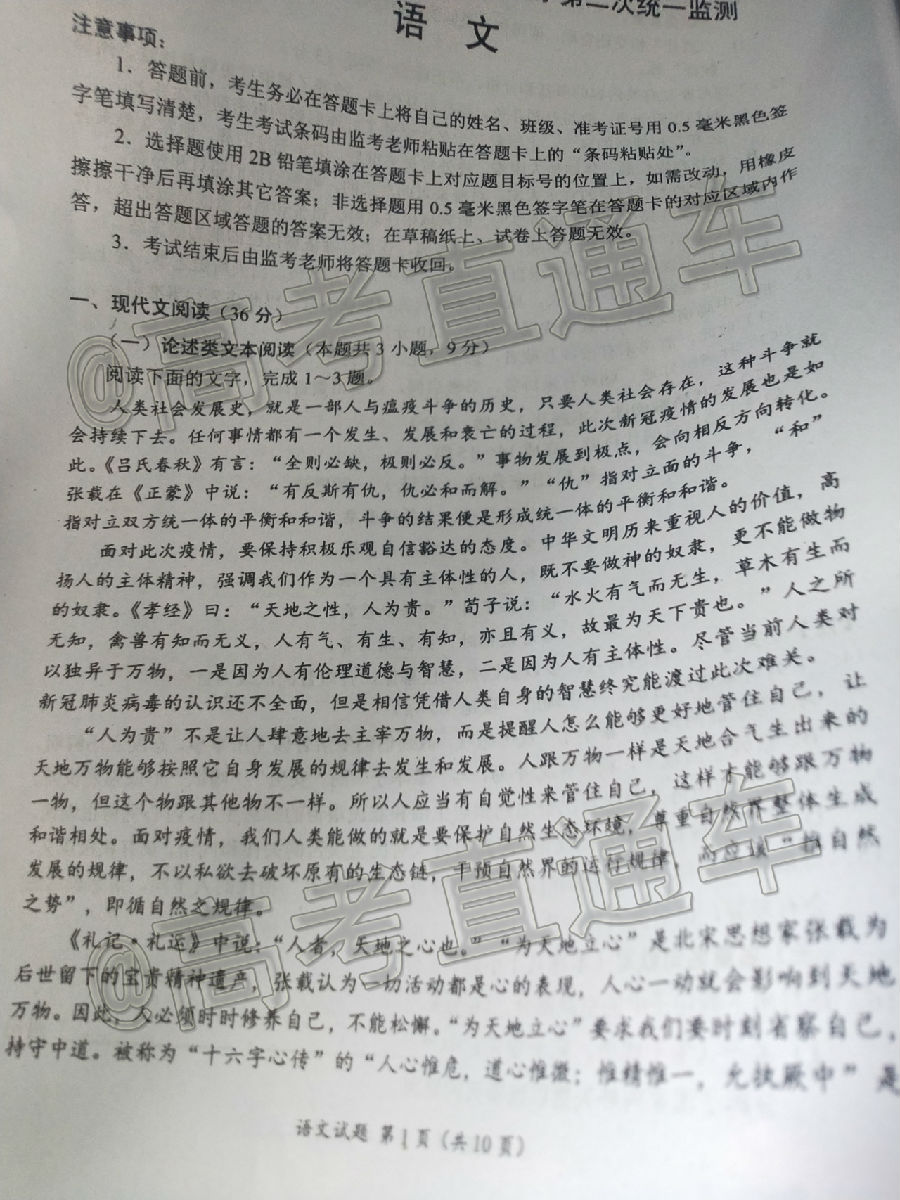 第二次统一监测
语 文
注意事项：
1．答题前，考生务必在答题卡上将自己的姓名、班级、准考证号用 0.5 毫米黑色签
字笔填写清楚，考生考试条码由监考老师粘贴在答题卡上的“条码粘贴处”。
2．选择题使用 2B 铅笔填涂在答题卡上对应题目标号的位置上，如需改动，用橡皮
擦擦干净后再填涂其它答案；非选择题用 0.5 毫米黑色签字笔在答题卡的对应区域内作
答，超出答题区域答题的答案无效；在草稿纸上、试卷上答题无效。
3．考试结束后由监考老师将答题卡收回。
一、现代文阅读（36 分）
（一）论述类文本阅读（本题共 3 小题，9 分）
阅读下面的文字，完成 1～3 题。
人类社会发展史，就是一部人与瘟疫斗争的历史，只要人类社会存在，这种斗争就
会持续下去。任何事情都有一个发生、发展和衰亡的过程，此次新冠疫情的发展也是如
此。《吕氏春秋》有言：“全则必缺，极则必反。”事物发展到极点，会向相反方向转化。
张载在《正蒙》中说：“有反斯有仇，仇必和而解。”“仇”指对立面的斗争，“和”
指对立双方统一体的平衡和和谐，斗争的结果便是形成统一体的平衡和和谐。
面对此次疫情，要保持积极乐观自信豁达的态度。中华文明历来重视人的价值，高
扬人的主体精神，强调我们作为一个具有主体性的人，既不要做神的奴隶，更不能做物
的奴隶。《孝经》曰：“天地之性，人为贵。”荀子说：“水火有气而无生，草木有生而
无知，禽兽有知而无义，人有气、有生、有知，亦且有义，故最为天下贵也。”人之所
以独异于万物，一是因为人有伦理道德与智慧，二是因为人有主体性。尽管当前人类对
新冠肺炎病毒的认识还不全面，但是相信凭借人类自身的智慧终究能渡过此次难关。
“人为贵”不是让人肆意地去主宰万物，而是提醒人怎么能够更好地管住自己，让
天地万物能够按照它自身发展的规律去发生和发展。人跟万物一样是天地合气生出来的
一物，但这个物跟其他物不一样。所以人应当有自觉性来管住自己，这样才能够跟万物
和谐相处。面对疫情，我们人类能做的就是要保护自然生态环境，尊重自然界整体生成
发展的规律，不以私欲去破坏原有的生态链，干预自然界的运行规律，而应该“自然
之势”，即循自然之规律。
《礼记·礼运》中说：“人者，天地之心也。”“为天地立心”是北宋思想家张载为
后世留下的宝贵精神遗产，张载认为一切活动都是心的表现，人心一动就会影响到天地
万物。因此，人必须时时修养自己，不能松懈。“为天地立心”要求我们要时刻省察自己，
持守中道。被称为“十六字心传”的“人心惟危，道心惟微；惟精惟一，允执厥中”是
语文试题 第 1 页（共 10 页）
@高考直通车
@高考直通车